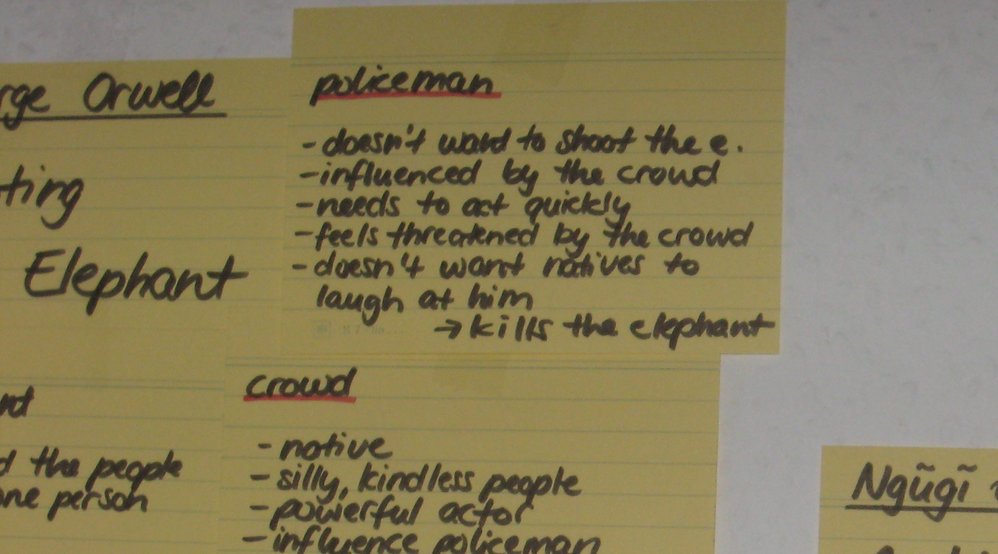 rge Orwell
ting
Elephant
policeman
- doesn't want to shoot the e.
- influenced by the crowd
- needs to act quickly
- feels threatened by the crowd
- doesn't want natives to
laugh at him
→ kills the elephant
d the people
one person
crowd
- native
- silly, kindless people
- powerful actor
- influence policeman
Ngũgĩ